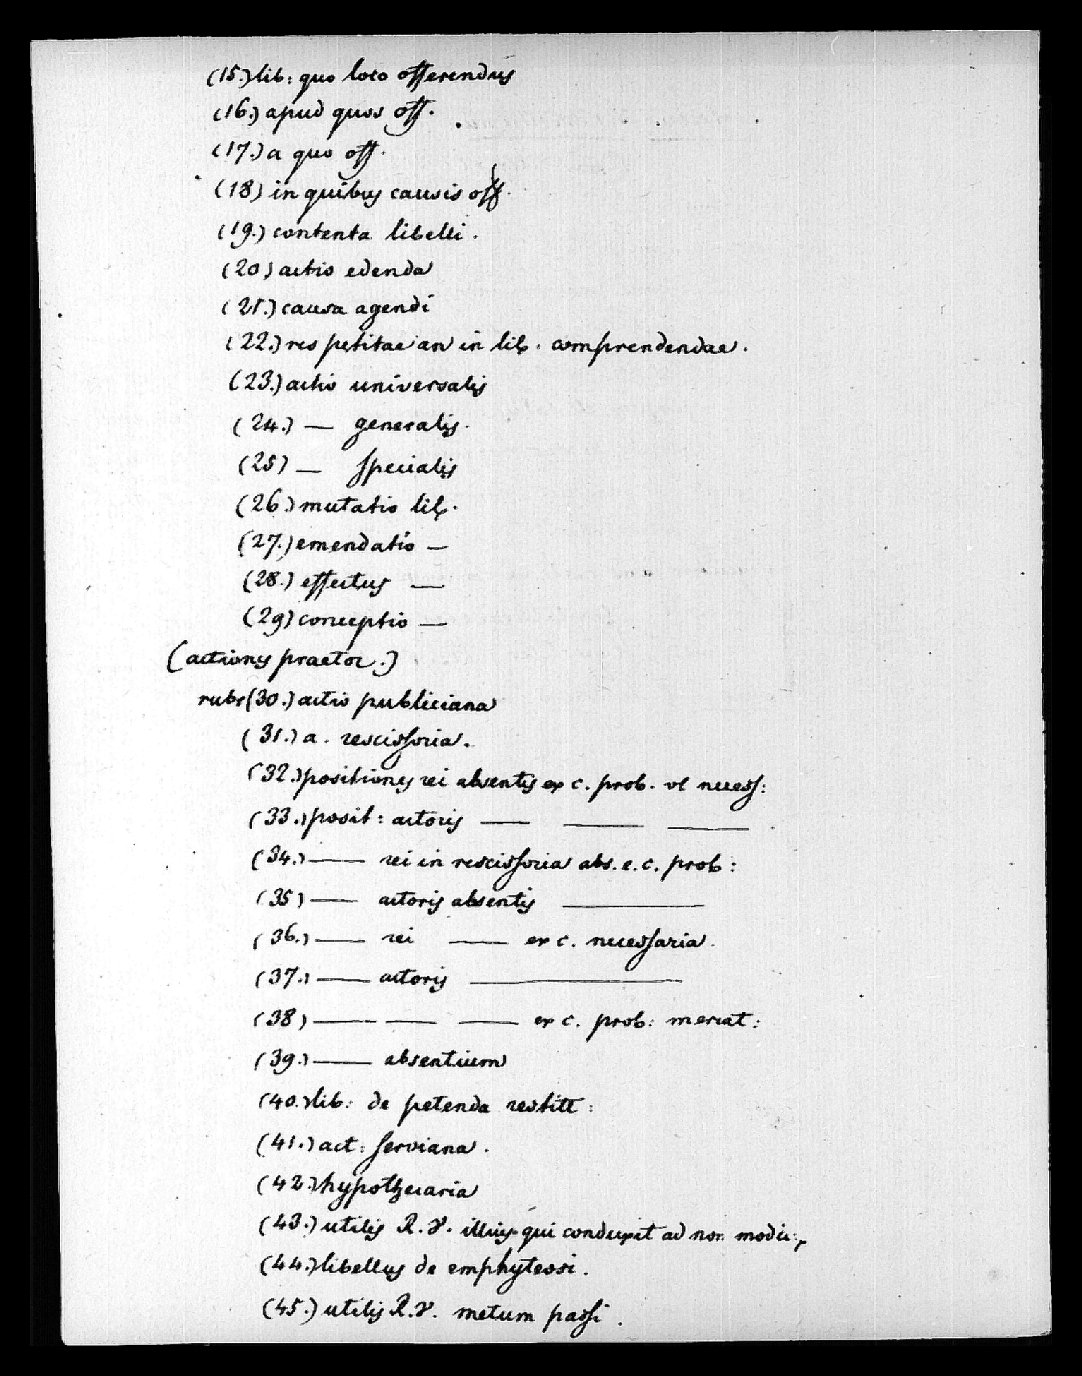 (15.) lib: quo loco offerendus
(16.) apud quos off.
(17.) a quo off.
(18) in quibus causis off.
(19.) contenta libelli.
(20) actio edenda
(21.) causa agendi
(22.) res petitae an in lib. comprendendae.
(23.) actio universalis
(24.) — generalis.
(25) — specialis
(26) mutatio lib.
(27.) emendatio —
(28.) effectus —
(29) conceptio —
(actiones praetor.)
rubr (30.) actio publiciana
(31.) a. rescissoria.
(32.) positiones rei absentis ex c. prob. vl necess:
(33.) posit: actoris — — —
(34.) — rei in rescissoria abs. e. c. prob:
(35) — actoris absentis —
(36.) — rei — ex c. necessaria.
(37.) — actoris —
(38) — — — ex c. prob: mercat:
(39.) — absentium
(40.) lib: de petenda restitt:
(41.) act: serviana.
(42.) hypothecaria
(43.) utilis R.V. illius qui conduxit ad non modic:
(44.) libellus de emphyteosi.
(45.) utilis R.V. metum passi.